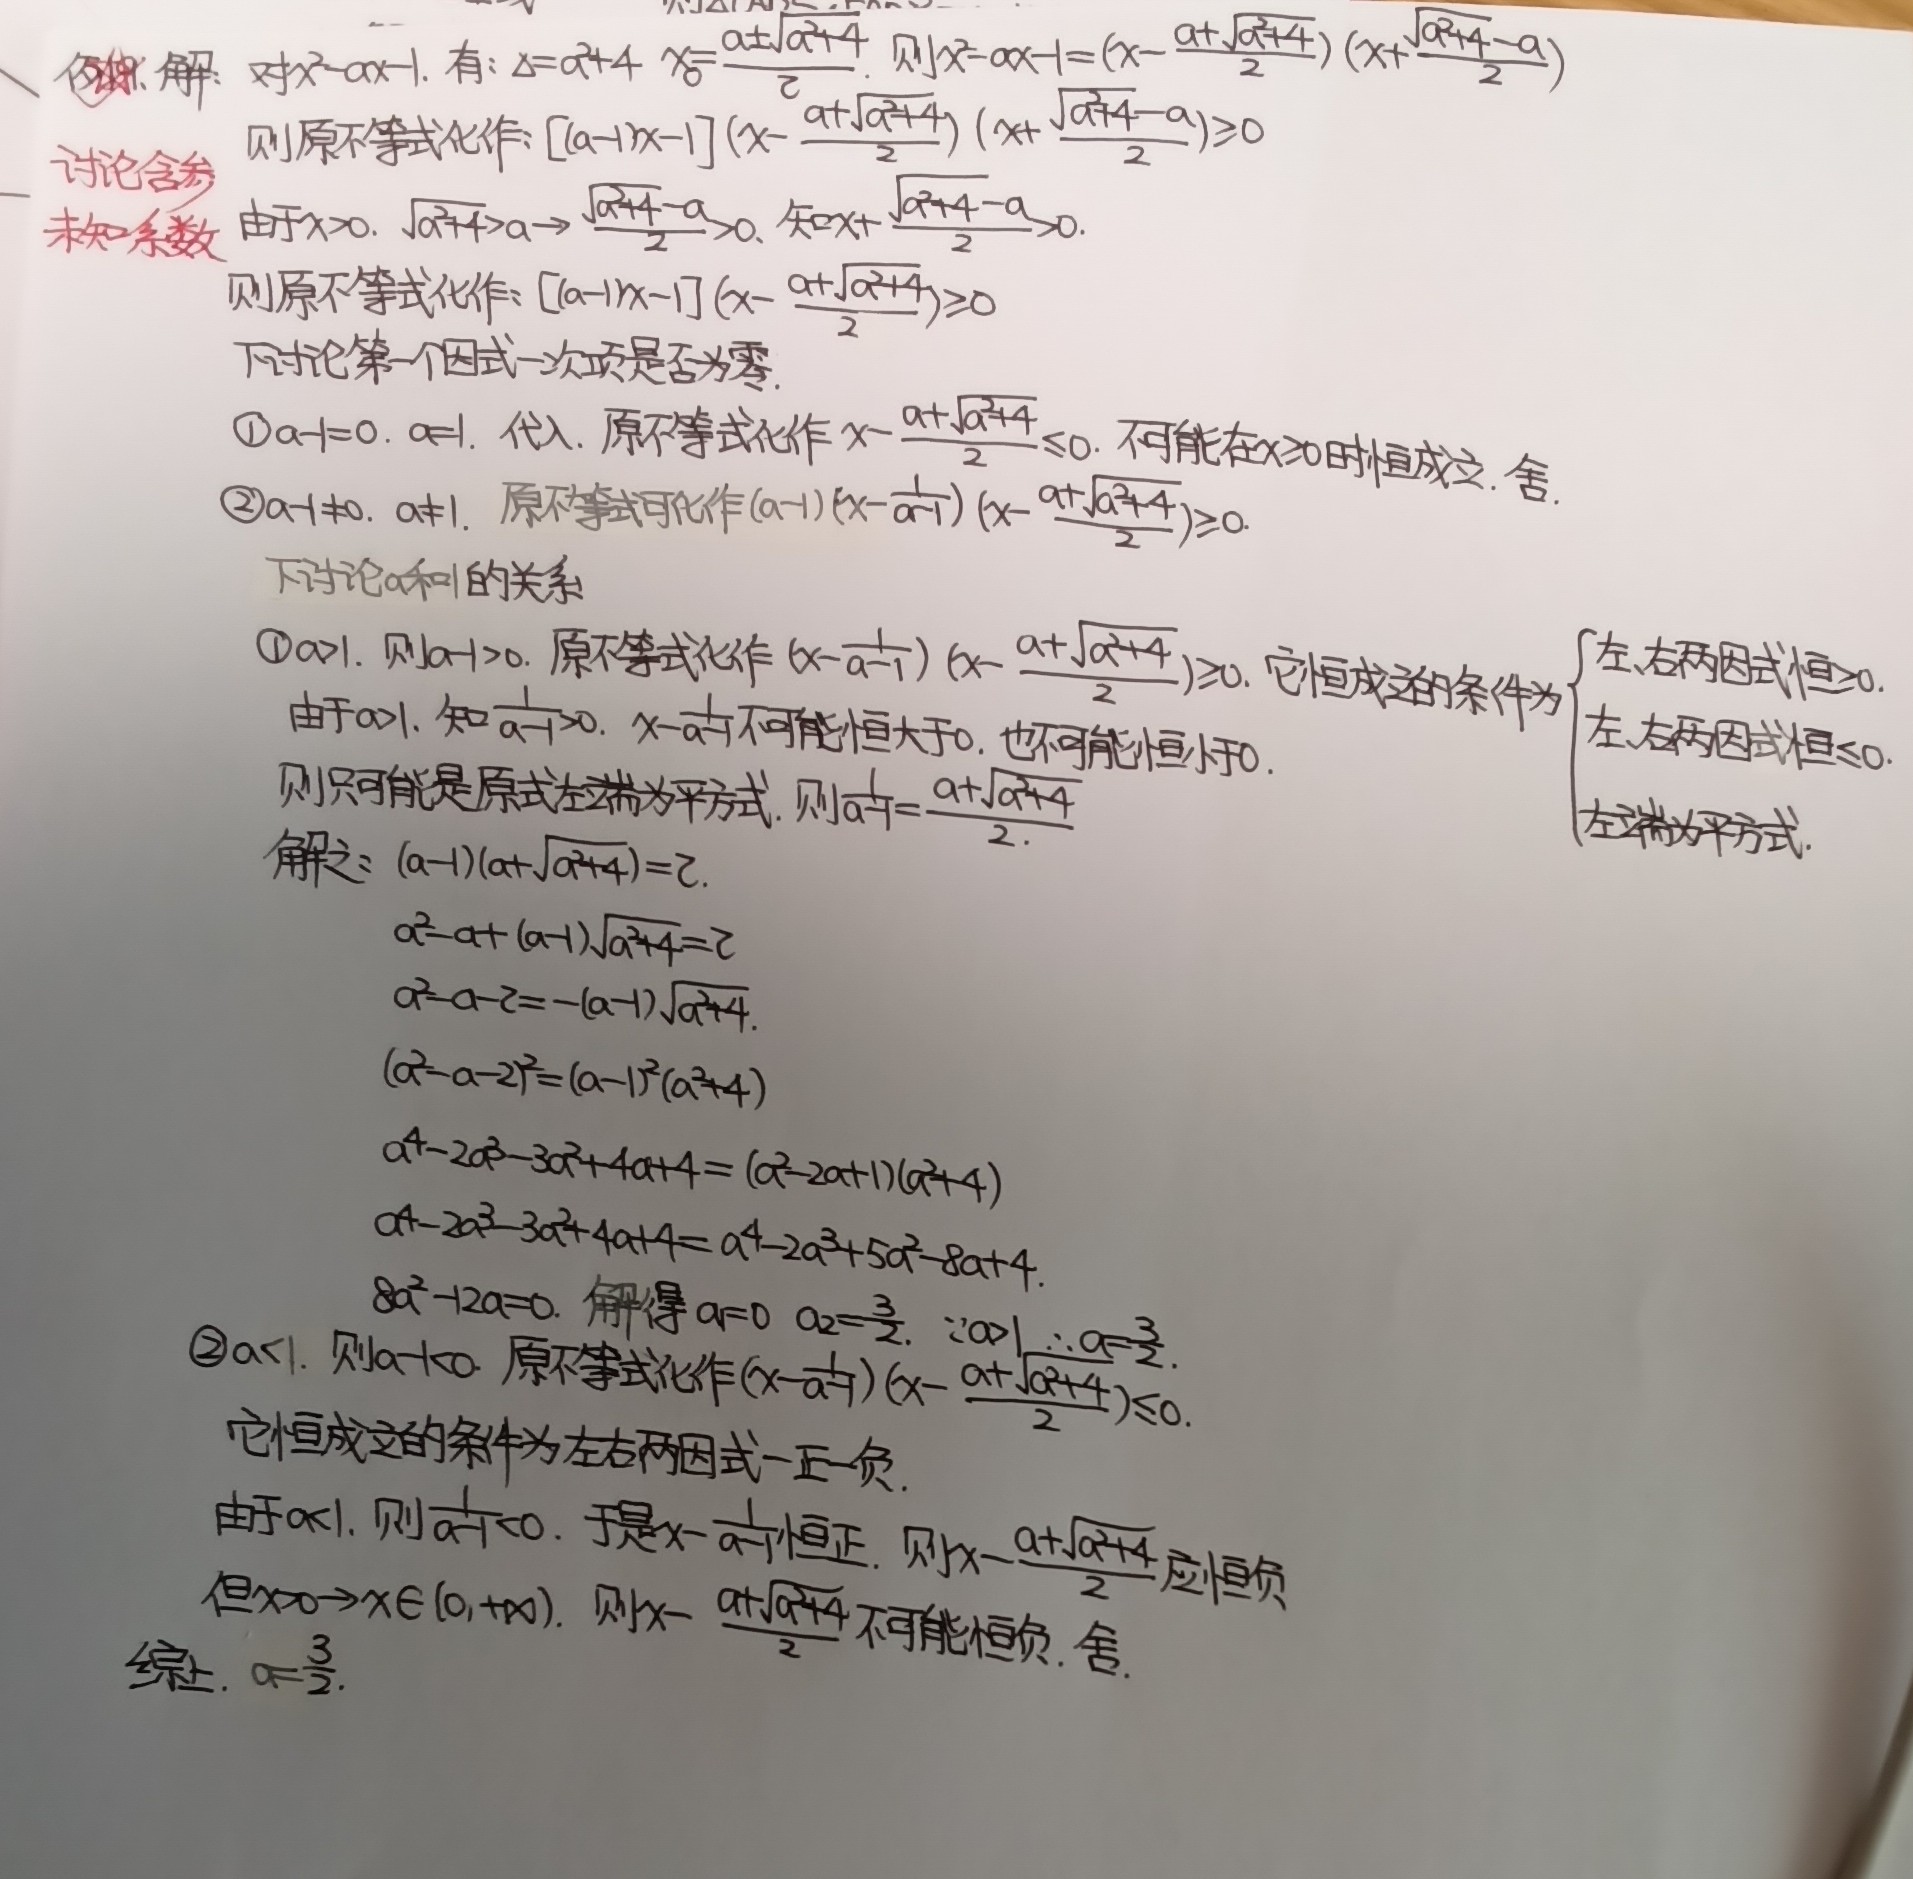 解: 对x²-ax-1. 有: Δ=a²+4 x₀=(a±√(a²+4))/2. 则x²-ax-1=(x-(a+√(a²+4))/2)(x+(√(a²+4)-a)/2)
则原不等式化作: [(a-1)x-1](x-(a+√(a²+4))/2)(x+(√(a²+4)-a)/2)≥0
讨论含参
未知系数
由于x>0. √(a²+4)>a→(√(a²+4)-a)/2>0. 知x+(√(a²+4)-a)/2>0.
则原不等式化作: [(a-1)x-1](x-(a+√(a²+4))/2)≥0
下讨论第一个因式一次项是否为零.
①a-1=0. a=1. 代入. 原不等式化作 x-(a+√(a²+4))/2≤0. 不可能在x≥0时恒成立. 舍.
②a-1≠0. a≠1. 原不等式可化作(a-1)(x-1/(a-1))(x-(a+√(a²+4))/2)≥0.
下讨论a和1的关系
①a>1. 则a-1>0. 原不等式化作(x-1/(a-1))(x-(a+√(a²+4))/2)≥0. 它恒成立的条件为
左、右两因式恒≥0.
左、右两因式恒≤0.
左端为平方式.
由于a>1. 知1/(a-1)>0. x-1/(a-1)不可能恒大于0. 也不可能恒小于0.
则只可能是原式左端为平方式. 则1/(a-1)=(a+√(a²+4))/2.
解之: (a-1)(a+√(a²+4))=2.
a²-a+(a-1)√(a²+4)=2
a²-a-2=-(a-1)√(a²+4).
(a²-a-2)²=(a-1)²(a²+4)
a⁴-2a³-3a²+4a+4=(a²-2a+1)(a²+4)
a⁴-2a³-3a²+4a+4=a⁴-2a³+5a²-8a+4.
8a²-12a=0. 解得a₁=0 a₂=3/2. ∵a>1 ∴a=3/2.
②a<1. 则a-1<0 原不等式化作(x-1/(a-1))(x-(a+√(a²+4))/2)≤0.
它恒成立的条件为左右两因式一正一负.
由于a<1. 则1/(a-1)<0. 于是x-1/(a-1)恒正. 则x-(a+√(a²+4))/2应恒负
但x>0→x∈(0,+∞). 则x-(a+√(a²+4))/2不可能恒负. 舍.
综上. a=3/2.